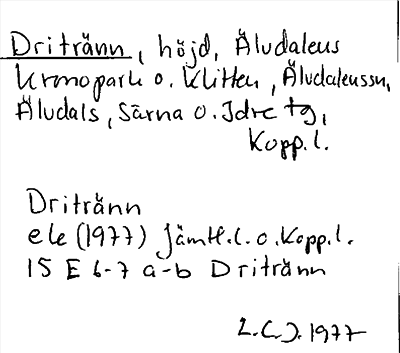 Dritränn, höjd, Äludalens
kronopark o. Klitten, Äludalenssn,
Äludals, Särna o. Idre tg,
Kopp.l.
Dritränn
ek (1977) Jämtl.l. o. Kopp.l.
15 E 6-7 a-b Dritränn
L.C.J. 1977